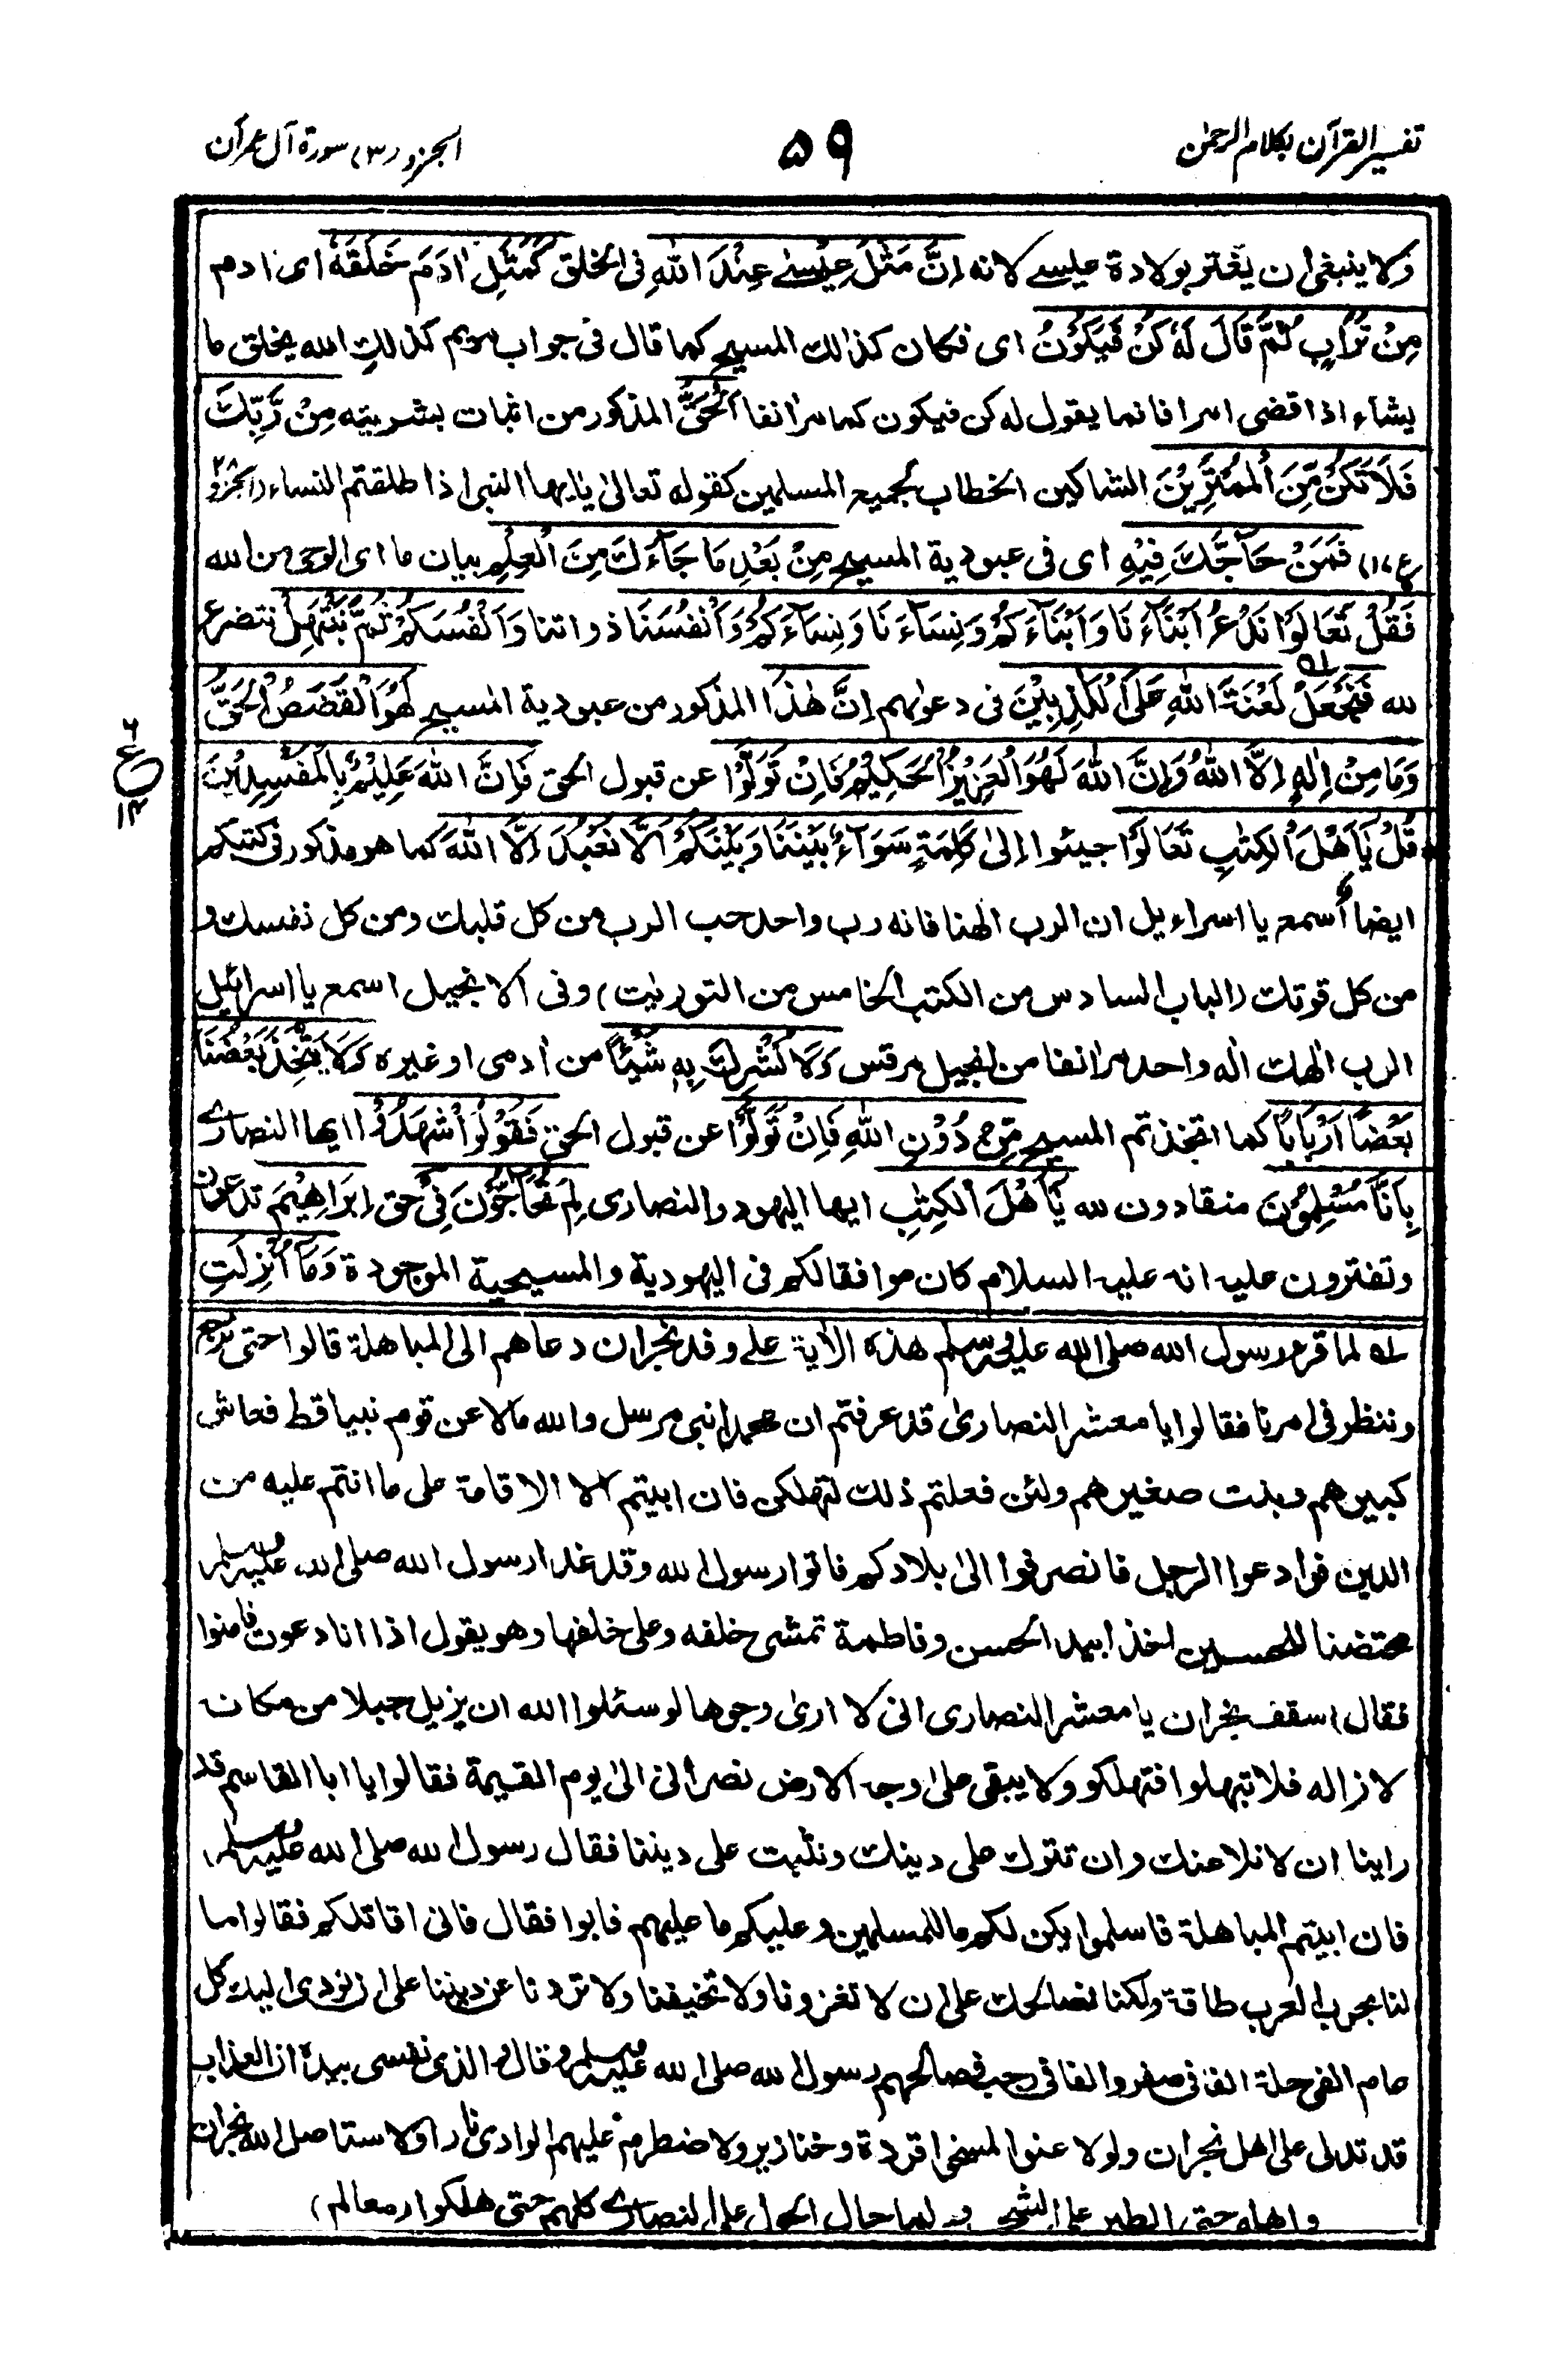 تفسير القرآن بكلام الرحمٰن
۵۹
الجزو (۳) سورة آل عمرآن
ولا ينبغى ان يغتر بولادة عيسے لانه اِنَّ مَثَلَ عِيْسٰے عِنْدَ اللّٰهِ فى الخلق كَمَثَلِ اٰدَمَ خَلَقَهٗ اى ادم
مِنْ تُرَابٍ ثُمَّ قَالَ لَهٗ كُنْ فَيَكُوْنُ اى فكان كذالك المسيح كما قال فى جواب مريم كذلك الله يخلق ما
يشاء اذا قضى امرا فانما يقول له كن فيكون كما مر اٰنفا اَلْحَقُّ المذكور من اثبات بشريته مِنْ رَّبِّكَ
فَلَا تَكُنْ مِّنَ الْمُمْتَرِيْنَ الشاكين الخطاب لجميع المسلمين كقوله تعالىٰ يٰايها النبى اذا طلقتم النساء (الجزو ۲۸
ع ۱۷) فَمَنْ حَآجَّكَ فِيْهِ اى فى عبودية المسيح مِنْ بَعْدِ مَا جَآءَكَ مِنَ الْعِلْمِ بيان ما اى الوحى من الله
فَقُلْ تَعَالَوْا نَدْعُ اَبْنَآءَنَا وَاَبْنَآءَكُمْ وَنِسَآءَنَا وَنِسَآءَكُمْ وَاَنْفُسَنَا ذواتنا وَاَنْفُسَكُمْ ثُمَّ نَبْتَهِلْ نتضرع
لله فَنَجْعَلْ لَعْنَةَ اللّٰهِ عَلَى الْكٰذِبِيْنَ فى دعوٰىهم اِنَّ هٰذَا المذكور من عبودية المسيح لَهُوَ الْقَصَصُ الْحَقُّ
وَمَا مِنْ اِلٰهٍ اِلَّا اللّٰهُ وَاِنَّ اللّٰهَ لَهُوَ الْعَزِيْزُ الْحَكِيْمُ فَاِنْ تَوَلَّوْا عن قبول الحق فَاِنَّ اللّٰهَ عَلِيْمٌۢ بِالْمُفْسِدِيْنَ
قُلْ يٰۤاَهْلَ الْكِتٰبِ تَعَالَوْا جيئوا اِلىٰ كَلِمَةٍ سَوَآءٍۢ بَيْنَنَا وَبَيْنَكُمْ اَلَّا نَعْبُدَ اِلَّا اللّٰهَ كما هو مذكور فى كتبكم
ايضا اسمع يا اسراءيل ان الرب الٰهنا فانه رب واحد حب الرب من كل قلبك ومن كل نفسك و
من كل قوتك (الباب السادس من الكتب الخامس من التورىٰت) وفى الانجيل اسمع يا اسرائيل
الرب الٰهك اله واحد مر انفا من انجيل مرقس وَلَا نُشْرِكَ بِهٖ شَيْئًا من اٰدمى او غيره وَلَا يَتَّخِذَ بَعْضُنَا
بَعْضًا اَرْبَابًا كما اتخذتم المسيح مِّنْ دُوْنِ اللّٰهِ فَاِنْ تَوَلَّوْا عن قبول الحق فَقُوْلُوا اشْهَدُوْا ايها النصارے
بِاَنَّا مُسْلِمُوْنَ منقادون لله يٰۤاَهْلَ الْكِتٰبِ ايها اليهود والنصارى لِمَ تُحَآجُّوْنَ فِىْ حق اِبْرَاهِيْمَ تدعون
وتفترون عليه انه عليه السلام كان موافقا لكم فى اليهودية والمسيحية الموجودة وَمَآ اُنْزِلَتِ
۶
ع
۱۴
لما قرء رسول الله صلى الله عليه وسلم هذه الاٰية علے وفد نجران دعاهم الى المباهلة قالوا حتى نرجع
وننظر فى امرنا فقالوا يا معشر النصارىٰ قد عرفتم ان محمدا نبى مرسل والله ما لاعن قوم نبيا قط فعاش
كبيرهم ونبت صغيرهم ولئن فعلتم ذلك لتهلكن فان ابيتم الا الاقامة على ما انتم عليه من
الدين فوادعوا الرجل فانصرفوا الىٰ بلادكم فاتوا رسول الله وقد غدا رسول الله صلى الله عليه وسلم
محتضنا للحسين اخذ ابيد الحسن وفاطمة تمشى خلفه وعلى خلفها وهو يقول اذا انا دعوت فامنوا
فقال اسقف نجران يا معشر النصارى انى لا ارىٰ وجوها لو سئلوا الله ان يزيل جبلا من مكانه
لازاله فلا تبهلوا فتهلكو ولا يبقى علىٰ وجه الارض نصرانى الىٰ يوم القيمة فقالوا يا ابا القاسم قد
راينا ان لا نلاعنك وان نتوك على دينك ونثبت على ديننا فقال رسول الله صلى الله عليه وسلم
فان ابيتم المباهلة فاسلموا يكن لكم ما للمسلمين وعليكم ما عليهم فابوا فقال فانى اقاتلكم فقالوا ما
لنا بحرب العرب طاقة ولكنا نصالحك على ان لا تغزونا ولا تخيفنا ولا تردنا عن ديننا على ان نؤدى اليك كل
عام الفى حلة الفا فى صفر والفا فى رجب فصالحهم رسول الله صلى الله عليه وسلم وقال والذى نفسى بيده ان العذاب
قد تدلى على اهل نجران ولو لاعنوا لمسخوا قردة وخنازير ولاضطرم عليهم الوادى نارا ولاستاصل الله نجران
واهله حتى الطير على الشجر ولما حال الحول على النصارے كلهم حتى هلكوا (معالم)